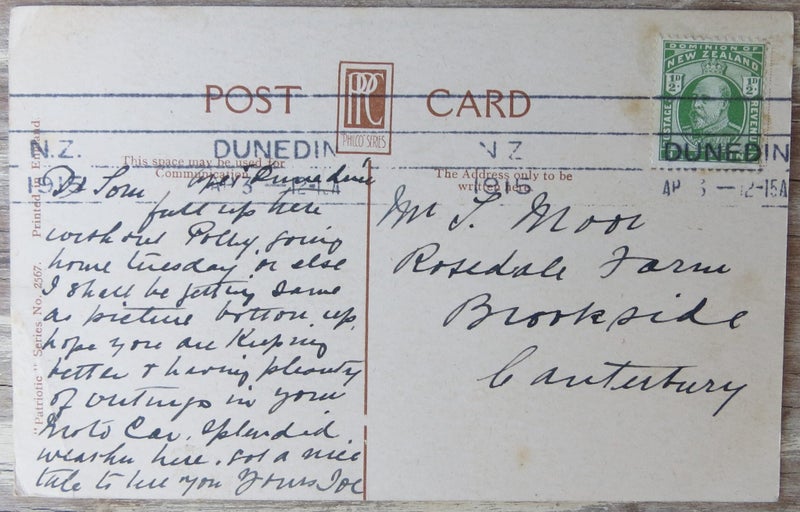 POST CARD
PPC
"PHILCO" SERIES
DOMINION OF
NEW ZEALAND
½D ½D
POSTAGE REVENUE
N.Z. DUNEDIN N Z DUNEDIN
191 AP 3 12-15A 1916 AP 3 — 12-15A
This space may be used for
Communication
The Address only to be
written here.
Printed in England
"Patriotic" Series No. 2567.
Dr Tom, Dunedin
full up here
without Polly, going
home tuesday or else
I shall be getting same
as picture bottom up
hope you are Keeping
better & having plenty
of outings in your
Moto Car. Splendid
weather here. got a nice
tale to tell you Yours Joe
Mr T. Moor
Rosedale Farm
Brookside
Canterbury